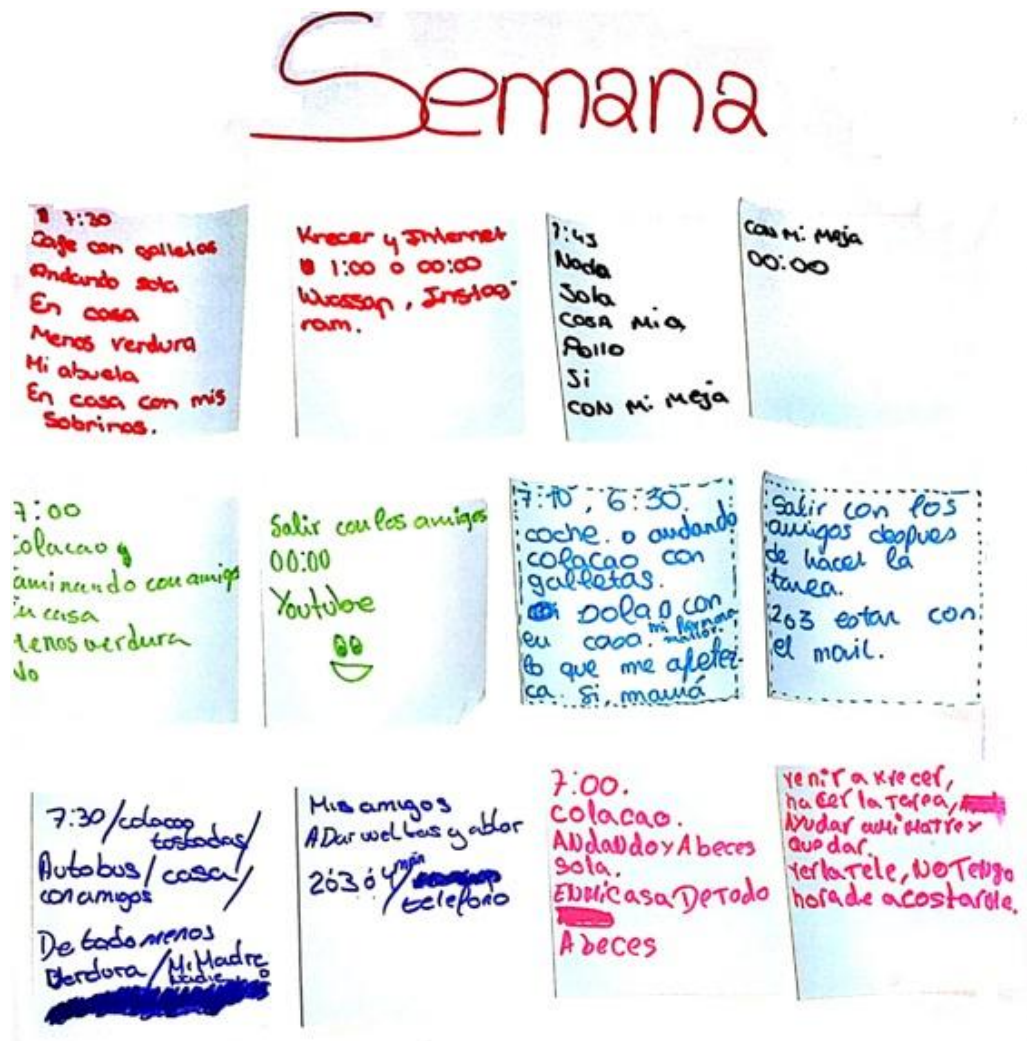 Semana
7:30
Cafe con galletas
Andando sola
En casa
Menos verdura
Mi abuela
En casa con mis
Sobrinos.
Krecer y Internet
1:00 o 00:00
Wassap, Instag-
ram.
7:45
Nada
Sola
COSA MiA
Pollo
Si
CON Mi Meja
CON Mi Meja
00:00
7:00
colacao y
aminando con amigo
En casa
Menos verdura
No
Salir con los amigos
00:00
Youtube
7:10, 6:30.
coche. o andando
colacao con
galletas.
sola o con
mi hermana
mallor.
en casa.
lo que me apeter-
ca. Si, mamá
Salir con los
amigos despues
de hacer la
tarea.
2o3 estar con
el movil.
7:30/colacao
tostadas/
Autobus/casa/
con amigos
De todo menos
Verdura/Mi Madre
o nadie
Mis amigos
A Dar weltas y ablar
2ó3 ó 4/
telefono
7:00.
colacao.
ANdANdo y Abeces
sola.
EN Mi Casa De Todo
Abeces
venir a Krecer,
hacer la Tarea,
Ayudar a Mi Matre y
quedar.
ver la Tele, NO Tengo
hora de acostarme.